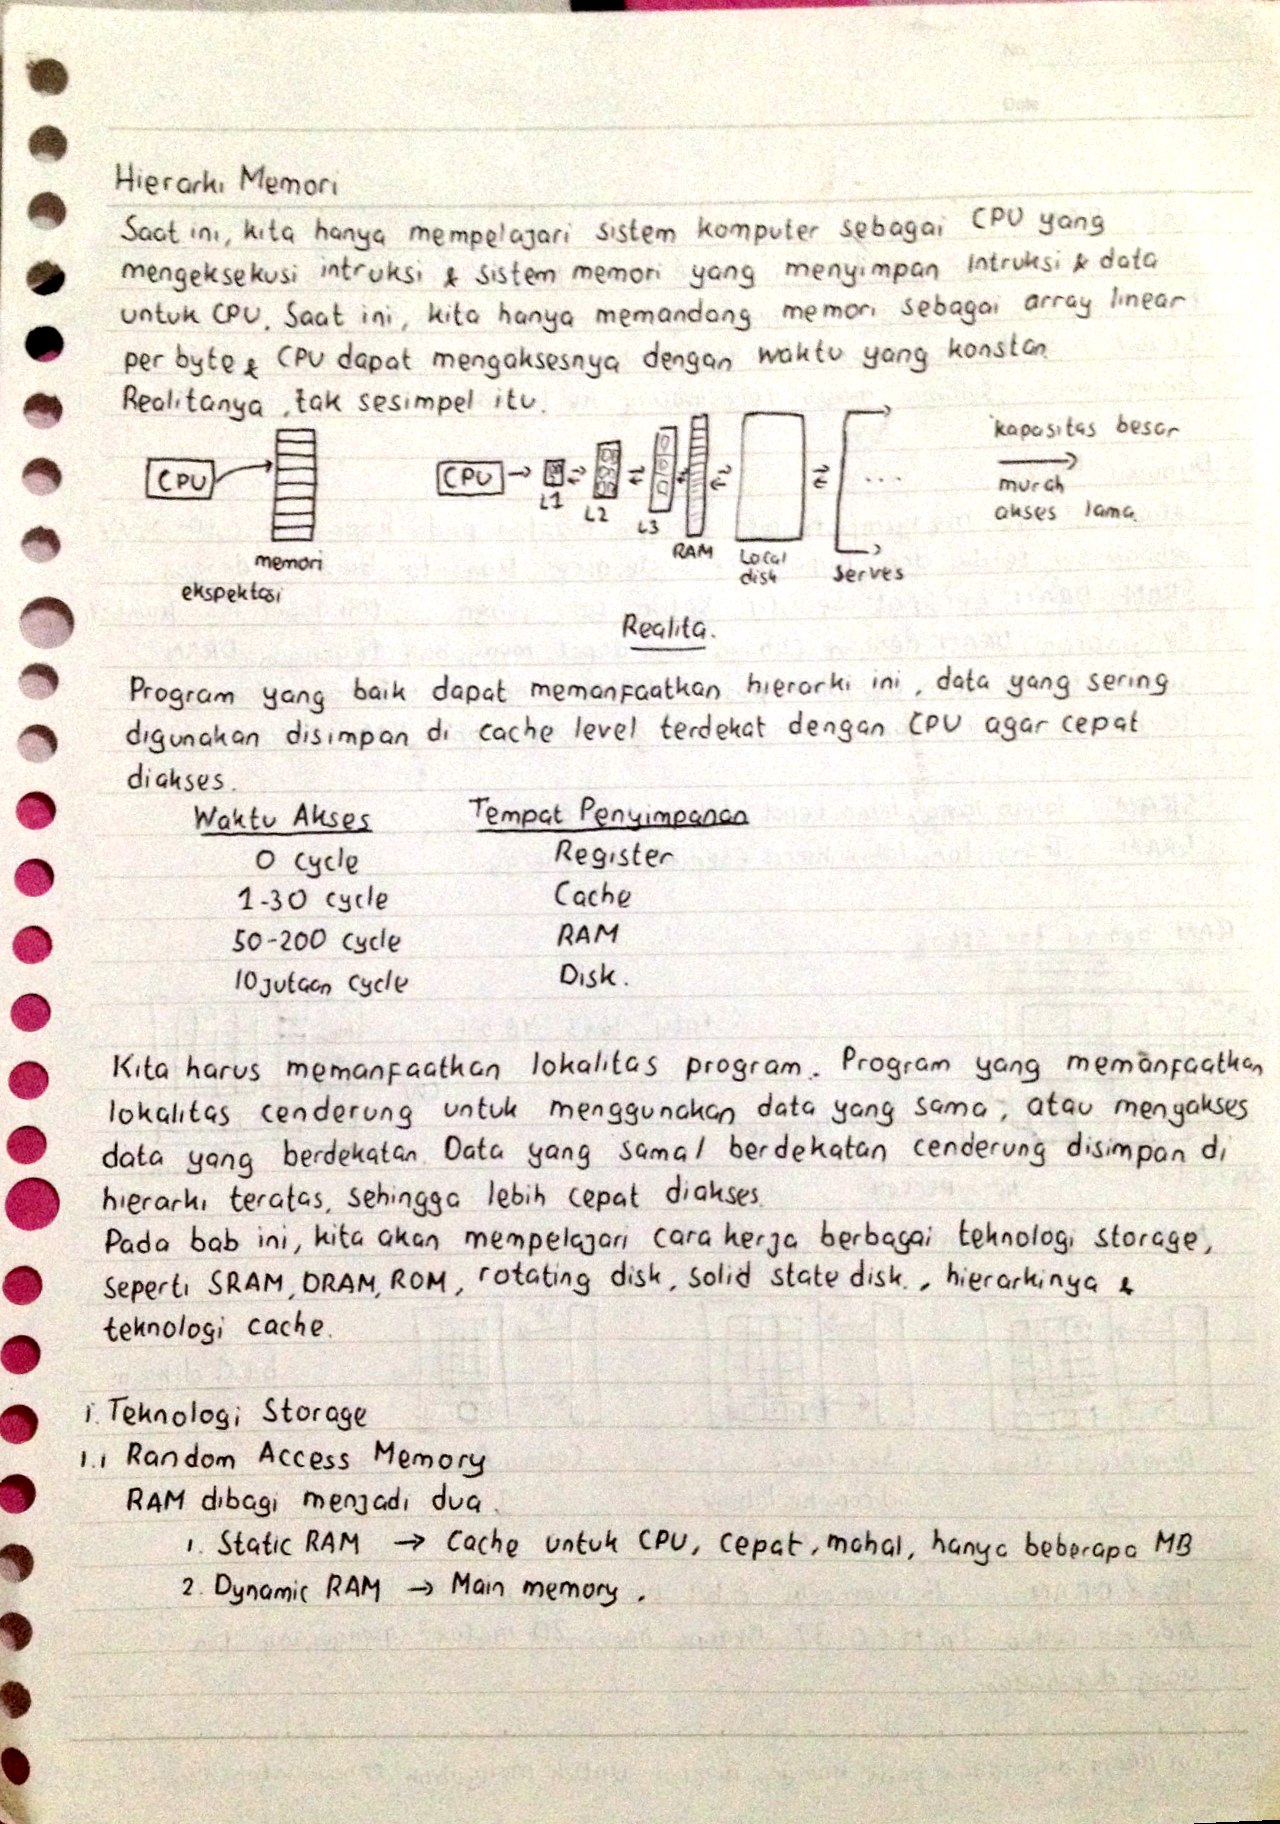 Hierarki Memori
Saat ini, kita hanya mempelajari sistem komputer sebagai CPU yang
mengeksekusi intruksi & sistem memori yang menyimpan intruksi & data
untuk CPU. Saat ini, kita hanya memandang memori sebagai array linear
per byte & CPU dapat mengaksesnya dengan waktu yang konstan
Realitanya, tak sesimpel itu.
CPU
memori
ekspektasi
CPU → L1 L2 L3 RAM Local disk ... Serves
kapasitas besar
→
murah
akses lama
Realita.
Program yang baik dapat memanfaatkan hierarki ini, data yang sering
digunakan disimpan di cache level terdekat dengan CPU agar cepat
diakses.
Waktu Akses Tempat Penyimpanan
0 cycle Register
1-30 cycle Cache
50-200 cycle RAM
10 jutaan cycle Disk.
Kita harus memanfaatkan lokalitas program. Program yang memanfaatkan
lokalitas cenderung untuk menggunakan data yang sama, atau mengakses
data yang berdekatan. Data yang sama/berdekatan cenderung disimpan di
hierarki teratas, sehingga lebih cepat diakses.
Pada bab ini, kita akan mempelajari cara kerja berbagai teknologi storage,
seperti SRAM, DRAM, ROM, rotating disk, solid state disk., hierarkinya &
teknologi cache.
1. Teknologi Storage
1.1 Random Access Memory
RAM dibagi menjadi dua.
1. Static RAM → Cache untuk CPU, cepat, mahal, hanya beberapa MB
2. Dynamic RAM → Main memory.